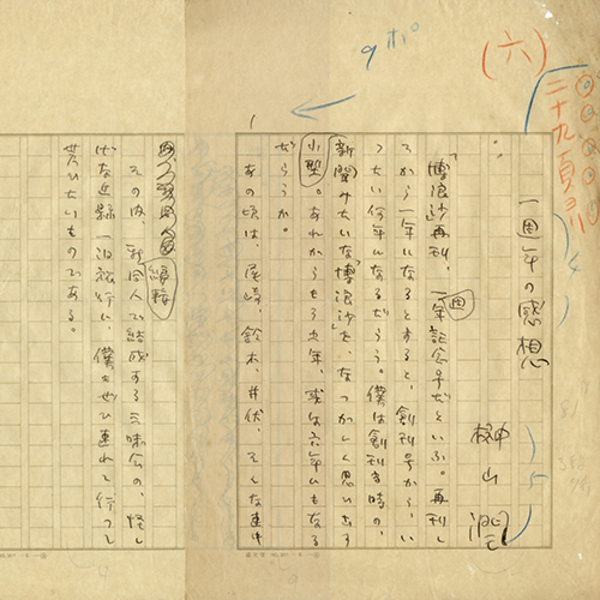 (六)
9ポ
二十九頁ヨリ
一周年の感想
榊山潤
「博浪沙再刊、一周年記念号だといふ。再刊し
てから一年になるとすると、創刊号から、い
つたい何年になるだらう。僕は創刊当時の、
新聞みたいな「博浪沙」を、なつかしく思い出す
小型。あれからもう五年、或は六年にもなる
だらうか。
あの頃は、尾崎、鈴木、井伏、そんな連中
編輯
その内、新同人で結成する三味会の、怪し
げな近県一泊旅行に、僕もぜひ連れて行つて
貰ひたいものである。